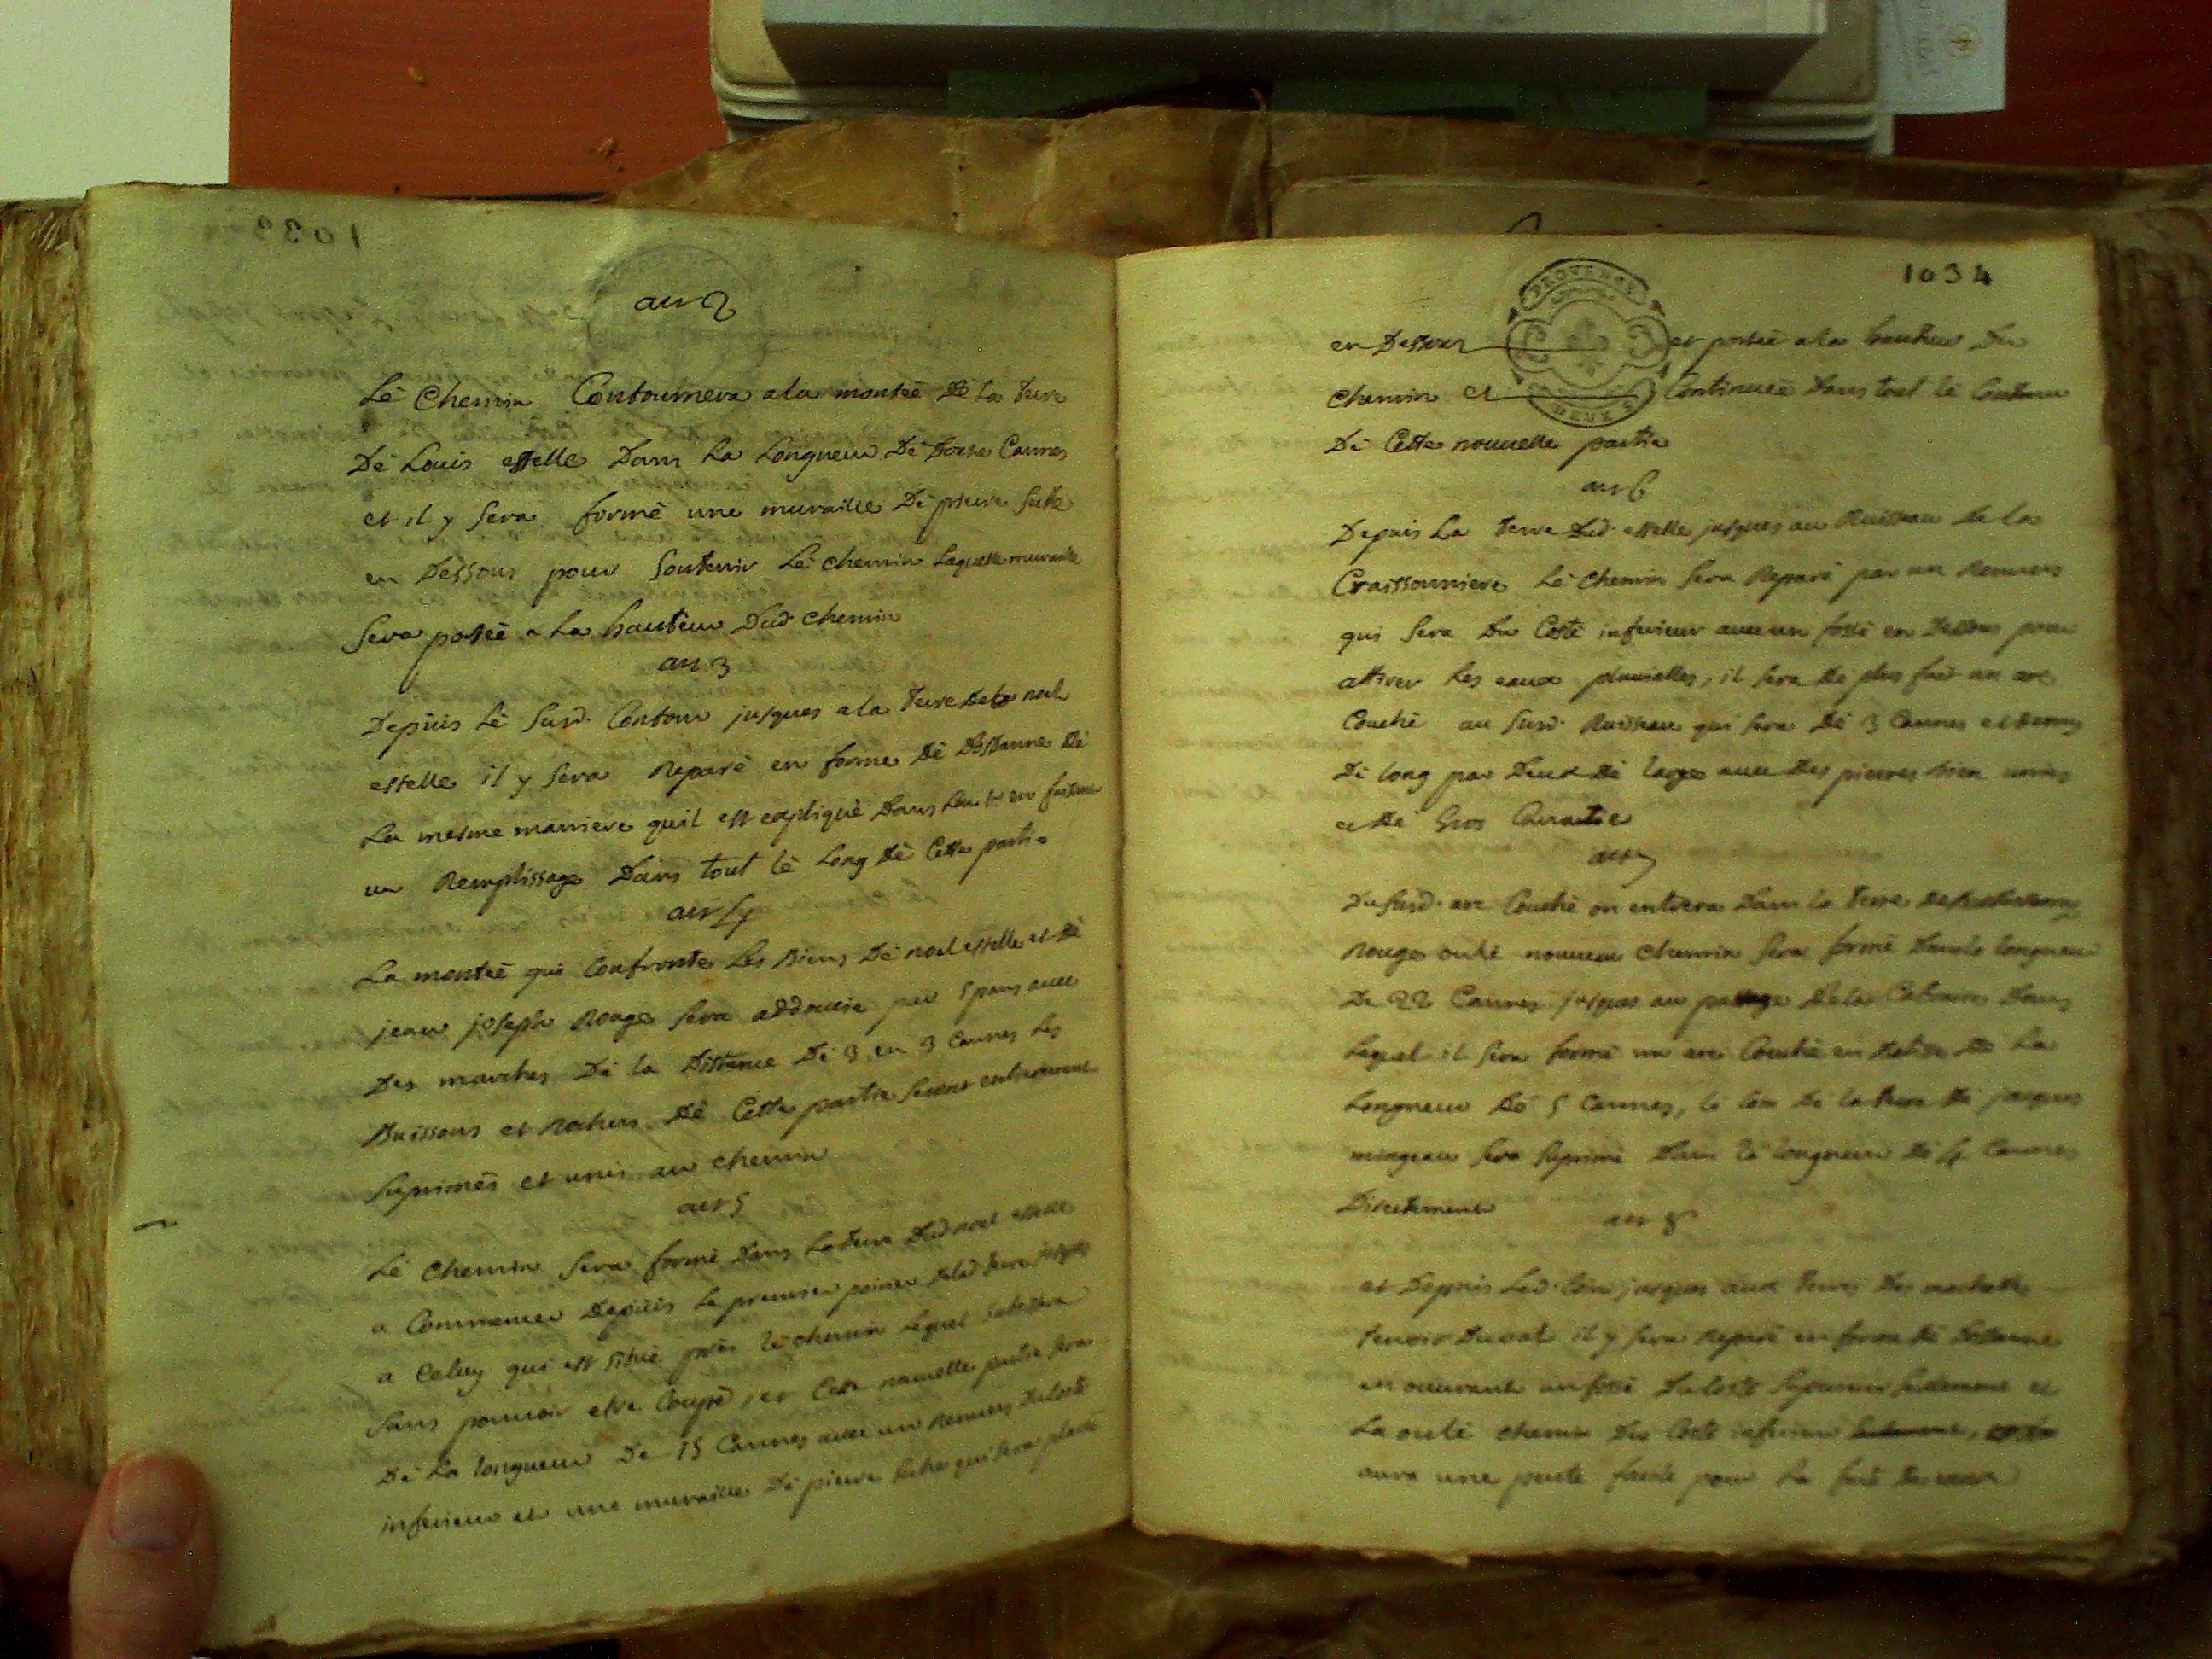 art 2
Lé Chemin Contournera a la monteé dé la terre
Dé Louis estelle Dans La Longueur Dé Douse Cannes
et il y sera formé une muraille Dé pierre seche
en Dessous pour soutenir Lé chemin Laquelle muraille
sera poseé a La hauteur Dud chemin
art 3
Depuis Lé susd. Contour jusques a la terre de noel
estelle il y sera Reparé en forme Dé Dosdane Dé
La mesme maniere quil est expliqué Dans en faisant
un Remplissage Dans tout lé Long Dé Cette partie
art 4
La monteé qui Confronte Les Biens Dé noel estelle et Dé
jean joseph Rouge sera addoucie par 5 pans avec
Des marches Dé la Distance Dé 3 en 3 Cannes Les
Buissons et Rochers Dé Cette partie seront entierement
suprimés et unis au chemin
art 5
Lé Chemin sera formé Dans La terre Dud noel estelle
a Commencer Depuis Le premier poirier jusques
a Celuy qui est situé prés lé chemin Lequel
sans pouvoir estre Coupé, et Cette nouvelle partie sera
Dé La longueur De 15 Cannes avec un Renvers Du Costé
inferieur et une muraille Dé pierre seche qui sera placeé
1034
PROVENCE
DEUX S
en Dessous et porteé a la hauteur Du
chemin et Continueé Dans tout lé Contour
Dé Cette nouvelle partie
art 6
Depuis La terre Dud. estelle jusques au Ruisseau De la
Craissouniere Lé Chemin sera Reparé par un Renvers
qui sera Du Costé inferieur avec un fossé en Dessous pour
attirer Les eaux pluvialles, il sera Dé plus fait un arc
Couché au susd. Ruisseau qui sera Dé 3 Cannes et Demy
Dé long par Deux Dé large avec Des pierres bien unies
et Dé Gros
art 7
Du susd. arc Couché on entrera Dans la terre
Rouge oulé nouveau chemin sera formé Dans la longueur
De 22 Cannes jusques au passage Dela Dans
Lequel il sera formé un arc Couché en De La
Longueur Dé 5 Cannes, lé Coin De la terre Dé jacques
mingeau sera suprimé Dans la longueur Dé 4 Cannes
Directement
art 8
et Depuis Led. Coin jusques aux terres Des
il y sera Reparé en forme Dé Dosdane
en ouvrant un fossé Du Costé superieur seulement et
La oulé chemin Du Costé inferieur
aura une pente pour La